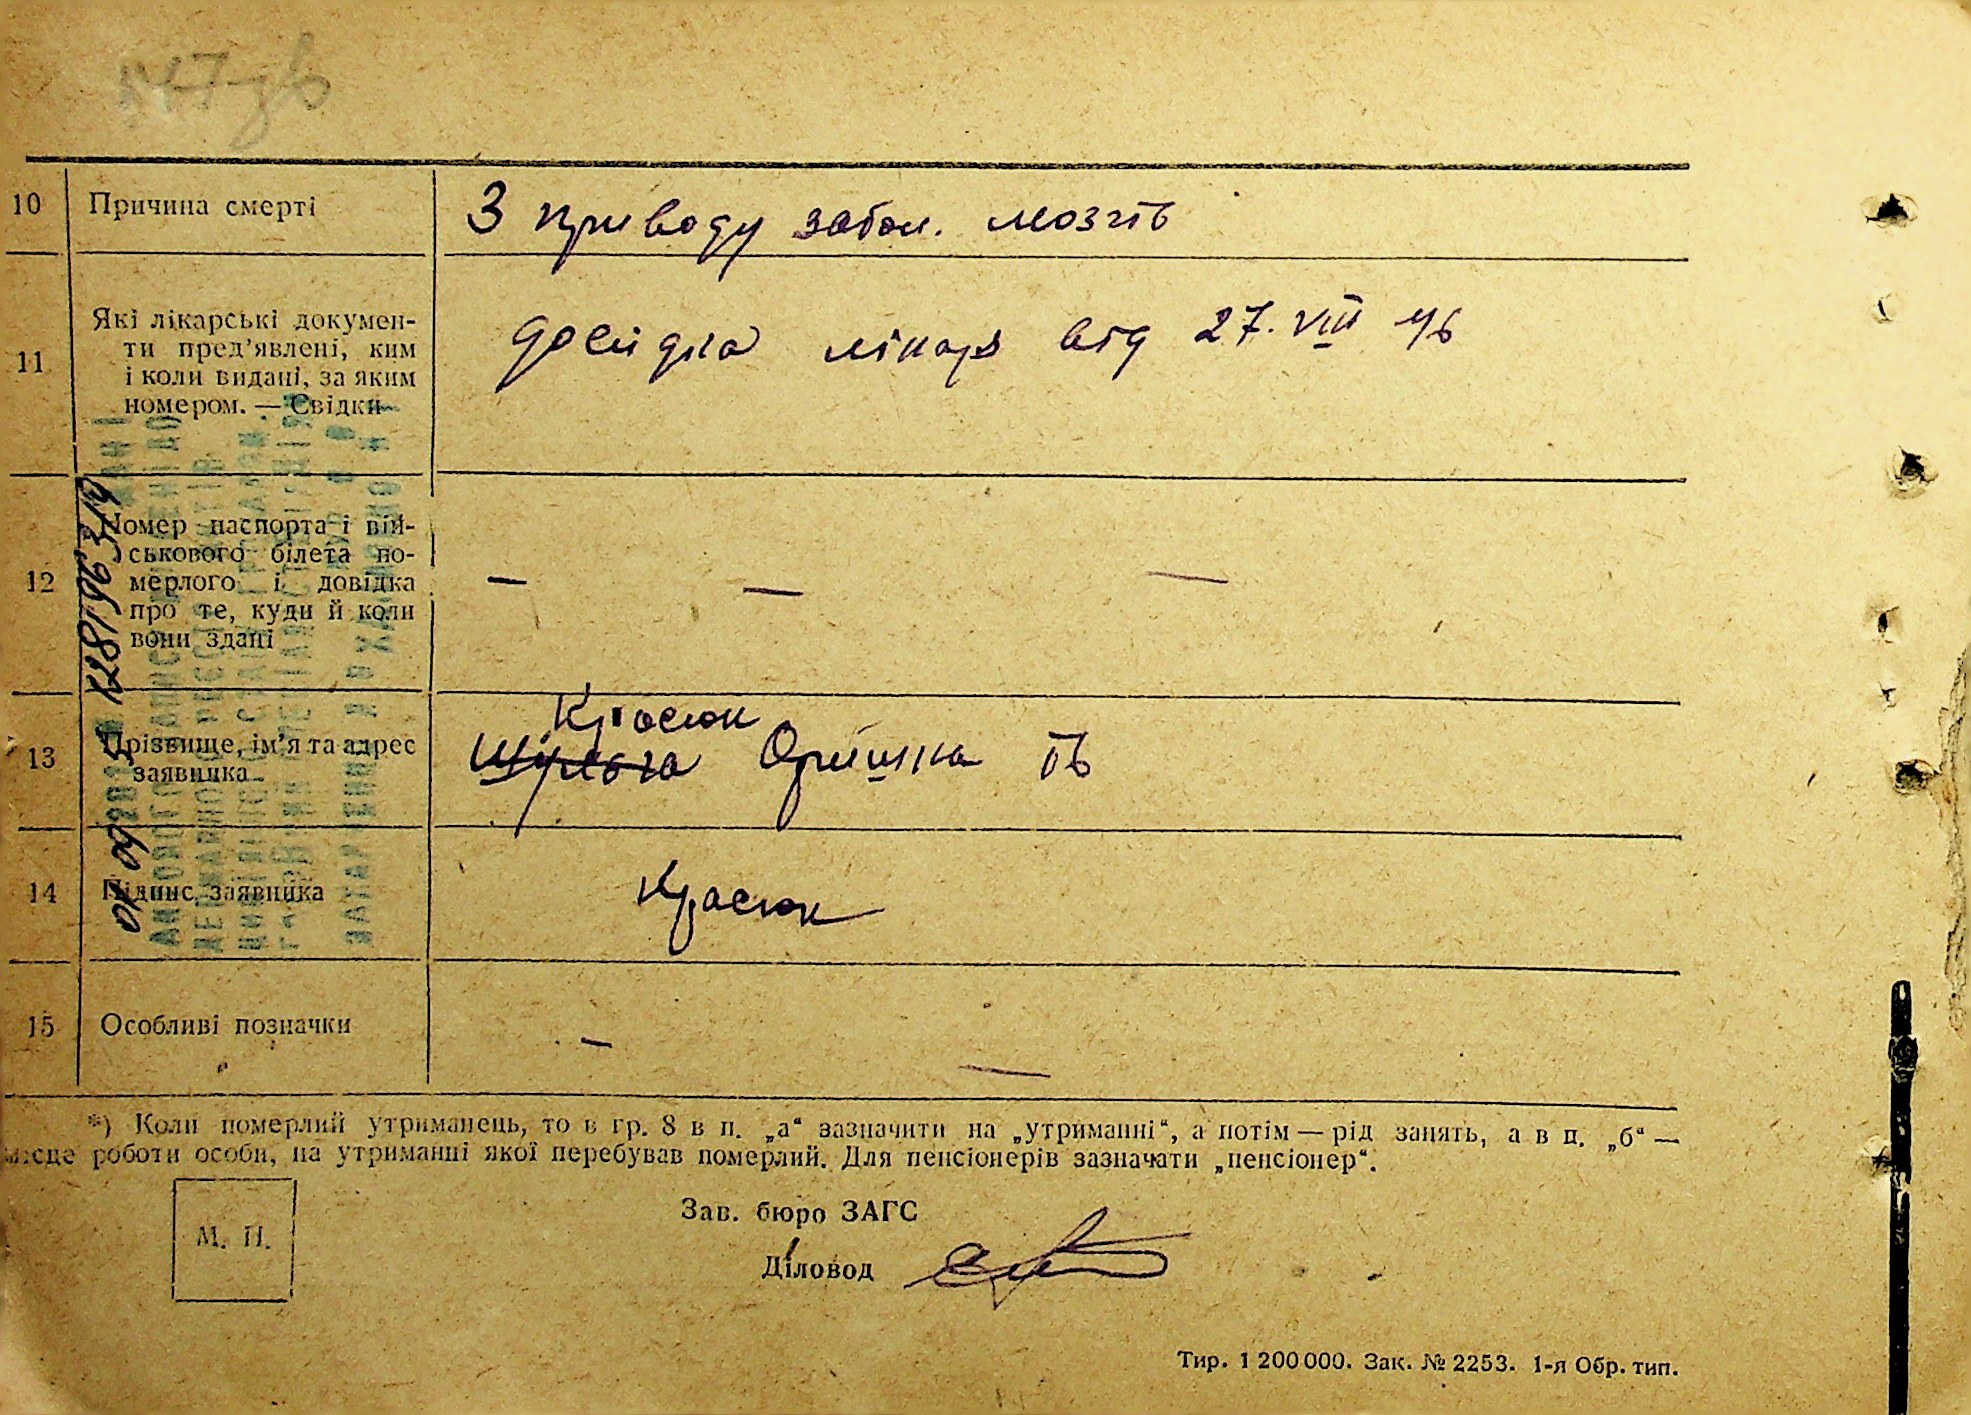 10 Причина смерті З приводу забол. мозгів
11 Які лікарські докумен-
ти пред'явлені, ким
і коли видані, за яким
номером. — Свідки
довідка лікаря від 27. VIII 46
12 Номер паспорта і вій-
ськового білета по-
мерлого і довідка
про те, куди й коли
вони здані
— — —
Красюк
13 Прізвище, ім'я та адрес
заявника
Шульга Оришка
14 Підпис заявника Красюк
15 Особливі позначки — —
*) Коли померлий утриманець, то в гр. 8 в п. „а“ зазначити на „утриманні“, а потім — рід занять, а в п. „б“ —
місце роботи особи, на утриманні якої перебував померлий. Для пенсіонерів зазначати „пенсіонер“.
М. П.
Зав. бюро ЗАГС
Діловод
Тир. 1 200 000. Зак. № 2253. 1-я Обр. тип.